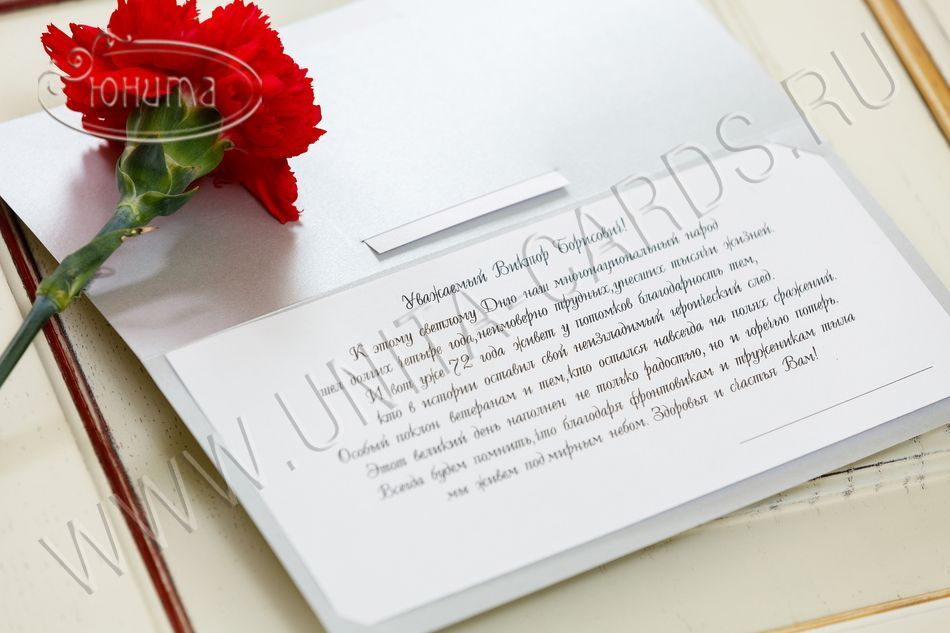 Юнита
WWW.UNITA-CARDS.RU
Уважаемый Виктор Борисович!
К этому светлому Дню наш многонациональный народ
шел долгих четыре года, неимоверно трудных, унесших тысячи жизней.
И вот уже 72 года живет у потомков благодарность тем,
кто в истории оставил свой неизгладимый героический след.
Особый поклон ветеранам и тем, кто остался навсегда на полях сражений.
Этот великий день наполнен не только радостью, но и горечью потерь.
Всегда будем помнить, что благодаря фронтовикам и труженикам тыла
мы живем под мирным небом. Здоровья и счастья Вам!